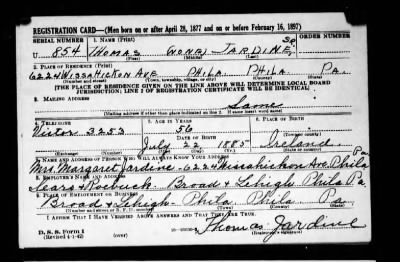 REGISTRATION CARD—(Men born on or after April 28, 1877 and on or before February 16, 1897)
SERIAL NUMBER 1. NAME (Print) ORDER NUMBER
U 854 THOMAS (NONE) JARDINE SR
2. PLACE OF RESIDENCE (Print)
6224 WISSAHICKON AVE PHILA. PHILA PA.
(Number and street) (Town, township, village, or city) (County) (State)
[THE PLACE OF RESIDENCE GIVEN ON THE LINE ABOVE WILL DETERMINE LOCAL BOARD
JURISDICTION; LINE 2 OF REGISTRATION CERTIFICATE WILL BE IDENTICAL]
3. MAILING ADDRESS
Same
[Mailing address if other than place indicated on line 2. If same insert word same]
4. TELEPHONE 5. AGE IN YEARS 6. PLACE OF BIRTH
Victor 3253 56
DATE OF BIRTH (Town or county)
July 22 1885 Ireland
(Exchange) (Number) (Mo.) (Day) (Yr.) (State or country)
7. NAME AND ADDRESS OF PERSON WHO WILL ALWAYS KNOW YOUR ADDRESS Pa
Mrs. Margaret Jardine - 6224 Wissahickon Ave. Phila
8. EMPLOYER'S NAME AND ADDRESS
Sears & Roebuck Broad & Lehigh Phila Pa.
9. PLACE OF EMPLOYMENT OR BUSINESS
Broad & Lehigh - Phila Phila Pa.
(Number and street or R. F. D. number) (Town) (County) (State)
I AFFIRM THAT I HAVE VERIFIED ABOVE ANSWERS AND THAT THEY ARE TRUE.
D. S. S. Form 1
(Revised 4-1-42) (over) Thomas Jardine
(Registrant's signature)